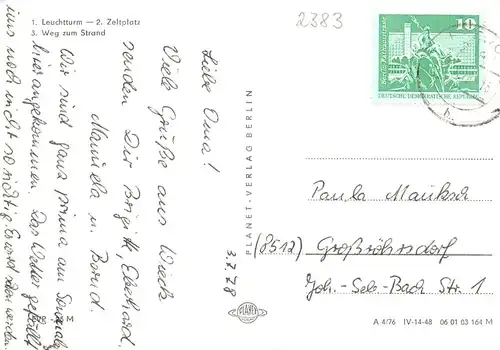 1. Leuchtturm — 2. Zeltplatz
3. Weg zum Strand
2383
10
DEUTSCHE DEMOKRATISCHE REPUBLIK
3.7.78
Liebe Oma!
Viele Grüße aus Wieck
senden Dir Brigitt, Eberhard,
Manuela u. Bernd.
Wir sind ganz prima am Sonnabend
hier angekommen. Das Wetter gefällt
uns noch nicht so richtig. Es werden
PLANET-VERLAG BERLIN
PLANET
Paula Mauksch
(8512) Großröhrsdorf
Joh.-Seb.-Bach Str. 1
A 4/76 IV-14-48 06 01 03 164 M